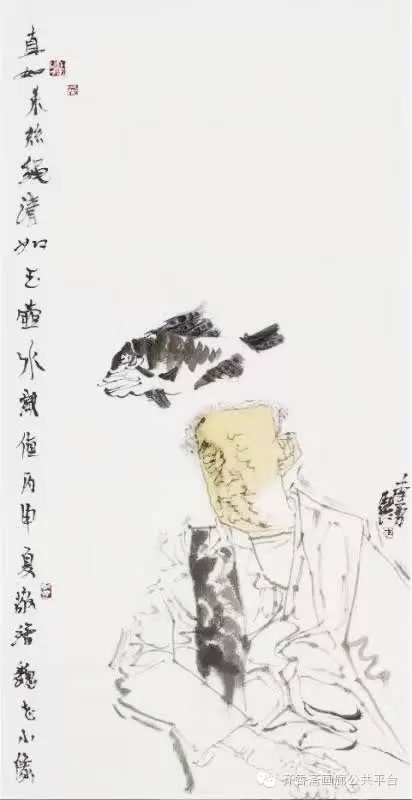 直如朱絲繩清如玉壺冰歲值丙申夏敬魏老小像
齐香斋画廊公共平台